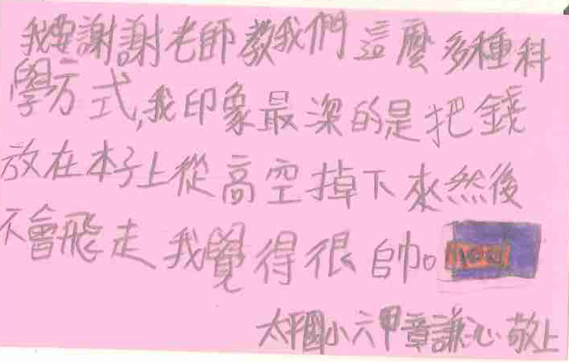 我要謝謝老師教我們這麼多種科
學方式,我印象最深的是把錢
放在本子上從高空掉下來然後
不會飛走我覺得很帥。
太平國小六甲章謙心敬上